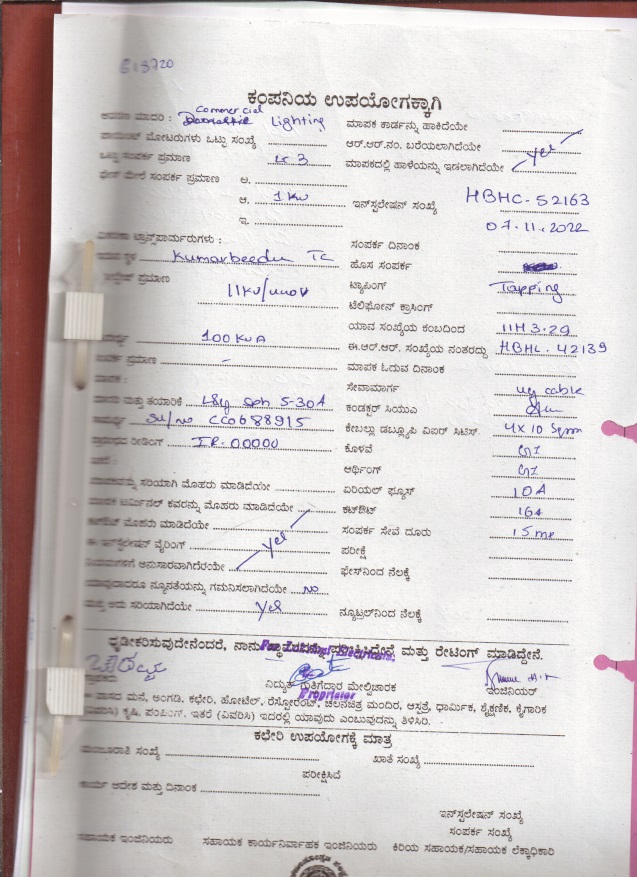 613720
ಕಂಪನಿಯ ಉಪಯೋಗಕ್ಕಾಗಿ
ಮಾದರಿ : Commercial Lighting ಮಾಪಕ ಕಾರ್ಡನ್ನು ಹಾಕಿದೆಯೇ
ಮೋಟರುಗಳು ಒಟ್ಟು ಸಂಖ್ಯೆ ಆರ್.ಆರ್.ನಂ. ಬರೆಯಲಾಗಿದೆಯೇ yes
ಒಟ್ಟು ಸಂಪರ್ಕ ಪ್ರಮಾಣ 3 ಮಾಪಕದಲ್ಲಿ ಹಾಳೆಯನ್ನು ಇಡಲಾಗಿದೆಯೇ
ಮೇಲೆ ಸಂಪರ್ಕ ಪ್ರಮಾಣ ಅ.
ಆ. 1 KW ಇನ್‌ಸ್ಟಲೇಷನ್ ಸಂಖ್ಯೆ HBHC-52163
ಇ. 07.11.2022
ಟ್ರಾನ್ಸ್‌ಫಾರ್ಮರುಗಳು : ಸಂಪರ್ಕ ದಿನಾಂಕ
ಸ್ಥಳ Kumarbeedu TC ಹೊಸ ಸಂಪರ್ಕ
ಪ್ರಮಾಣ 11KV/ ಟ್ಯಾಪಿಂಗ್ Tapping
ಟೆಲಿಫೋನ್ ಕ್ರಾಸಿಂಗ್
100 KVA ಯಾವ ಸಂಖ್ಯೆಯ ಕಂಬದಿಂದ 11H 3.29
ಈ.ಆರ್.ಆರ್. ಸಂಖ್ಯೆಯ ನಂತರದ್ದು HBHL. 42139
ಸಂಪರ್ಕ ಪ್ರಮಾಣ - ಮಾಪಕ ಓದುವ ದಿನಾಂಕ
ಮಾಪಕ : ಸೇವಾಮಾರ್ಗ ug cable
ಮತ್ತು ತಯಾರಿಕೆ L&G 5-30A ಕಂಡಕ್ಟರ್ ಸಿಯುಎ
Sl/no CC0688915 ಕೇಬಲ್ಲು ಡಬ್ಲ್ಯೂಪಿ ವಿಐರ್ ಸಿಟಿಸ್. 4x10 Sqmm
ಪ್ರಾರಂಭದ ರೀಡಿಂಗ್ IR. 00000 ಕೊಳವೆ GI
ಅರ್ಥಿಂಗ್ GI
ಸರಿಯಾಗಿ ಮೊಹರು ಮಾಡಿದೆಯೇ ಏರಿಯಲ್ ಫ್ಯೂಸ್ 10A
ಮಾಪಕ ಟರ್ಮಿನಲ್ ಕವರನ್ನು ಮೊಹರು ಮಾಡಿದೆಯೇ ಕಟ್‌ಔಟ್ 16A
ಕಟ್‌ಔಟ್ ಮೊಹರು ಮಾಡಿದೆಯೇ ಸಂಪರ್ಕ ಸೇವೆ ದೂರು 15 mt
ಈ ಇನ್‌ಸ್ಟಲೇಷನ್ ವೈರಿಂಗ್ yes ಪರೀಕ್ಷೆ
ನಿಯಮಗಳಿಗೆ ಅನುಸಾರವಾಗಿದೆಯೇ ಫೇಸ್‌ನಿಂದ ನೆಲಕ್ಕೆ
ಯಾವುದಾದರೂ ನ್ಯೂನತೆಯನ್ನು ಗಮನಿಸಲಾಗಿದೆಯೇ No
ಮತ್ತು ಅದು ಸರಿಯಾಗಿದೆಯೇ yes ನ್ಯೂಟ್ರಲ್‌ನಿಂದ ನೆಲಕ್ಕೆ
ದೃಢೀಕರಿಸುವುದೇನೆಂದರೆ, ನಾನು ಮತ್ತು ರೇಟಿಂಗ್ ಮಾಡಿದ್ದೇನೆ.
ವಿದ್ಯುತ್ ಗುತ್ತಿಗೆದಾರ ಮೇಲ್ವಿಚಾರಕ ಇಂಜಿನಿಯರ್
Proprietor
ವಾಸದ ಮನೆ, ಅಂಗಡಿ, ಕಛೇರಿ, ಹೋಟೆಲ್, ರೆಸ್ಟೋರೆಂಟ್, ಚಲನಚಿತ್ರ ಮಂದಿರ, ಆಸ್ಪತ್ರೆ, ಧಾರ್ಮಿಕ, ಶೈಕ್ಷಣಿಕ, ಕೈಗಾರಿಕ
(ವಿವರಿಸಿ) ಕೃಷಿ, ಪಂಪಿಂಗ್, ಇತರೆ (ವಿವರಿಸಿ) ಇದರಲ್ಲಿ ಯಾವುದು ಎಂಬುವುದನ್ನು ತಿಳಿಸಿರಿ.
ಕಛೇರಿ ಉಪಯೋಗಕ್ಕೆ ಮಾತ್ರ
ಮಂಜೂರಾತಿ ಸಂಖ್ಯೆ ಖಾತೆ ಸಂಖ್ಯೆ
ಪರೀಕ್ಷಿಸಿದೆ
ಕಾರ್ಯ ಆದೇಶ ಮತ್ತು ದಿನಾಂಕ
ಇನ್‌ಸ್ಟಲೇಷನ್ ಸಂಖ್ಯೆ
ಸಂಪರ್ಕ ಸಂಖ್ಯೆ
ಸಹಾಯಕ ಇಂಜಿನಿಯರು ಸಹಾಯಕ ಕಾರ್ಯನಿರ್ವಾಹಕ ಇಂಜಿನಿಯರು ಕಿರಿಯ ಸಹಾಯಕ/ಸಹಾಯಕ ಲೆಕ್ಕಾಧಿಕಾರಿ